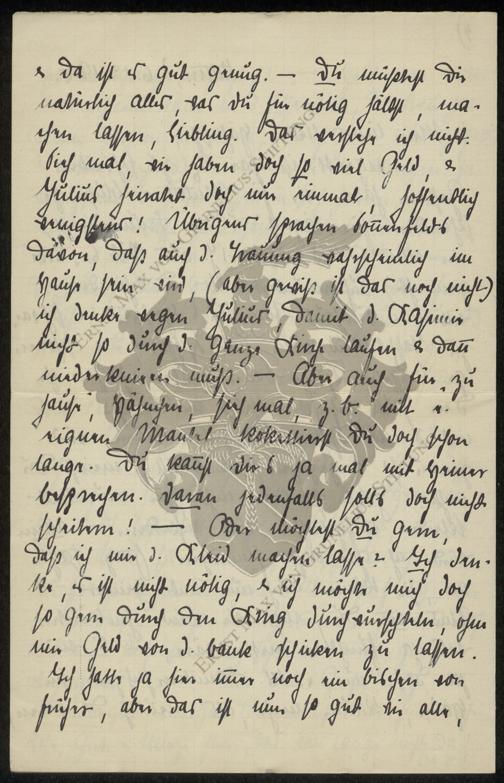 & da ist es gut genug. — Du müßtest Dir
natürlich alles, was Du für nötig hältst, ma-
chen lassen, Liebling. Das verstehe ich nicht.
Sieh mal, wir haben doch so viel Geld, &
Julius heiratet doch nur einmal, hoffentlich
wenigstens! Übrigens sprachen
davon, daß auch d. Trauung wahrscheinlich im
Hause sein wird, (aber gewiß ist das noch nicht)
ich denke wegen Julius, damit d.
nicht so durch d. ganze Kirche laufen & dann
niederknieen muß. — Aber auch für „zu
Hause", sieh mal, z. b. mit e.
eignen Mantel kokettierst Du doch schon
lange. Du kannst dies ja mal mit Heiner
besprechen. Daran jedenfalls solls doch nicht
scheitern! — Oder möchtest Du gern,
daß ich mir d. Kleid machen lasse? Ich den-
ke, es ist nicht nötig & ich möchte mich doch
so gern durch den Krieg durchwurschteln, ohne
mir Geld von d. bank schicken zu lassen.
Ich hatte ja hier immer noch ein bischen von
früher, aber das ist nun so gut wie alle,
ERNST MAX VON GRUNELIUS-STIFTUNG
ERNST MAX VON GRUNELIUS-STIFTUNG